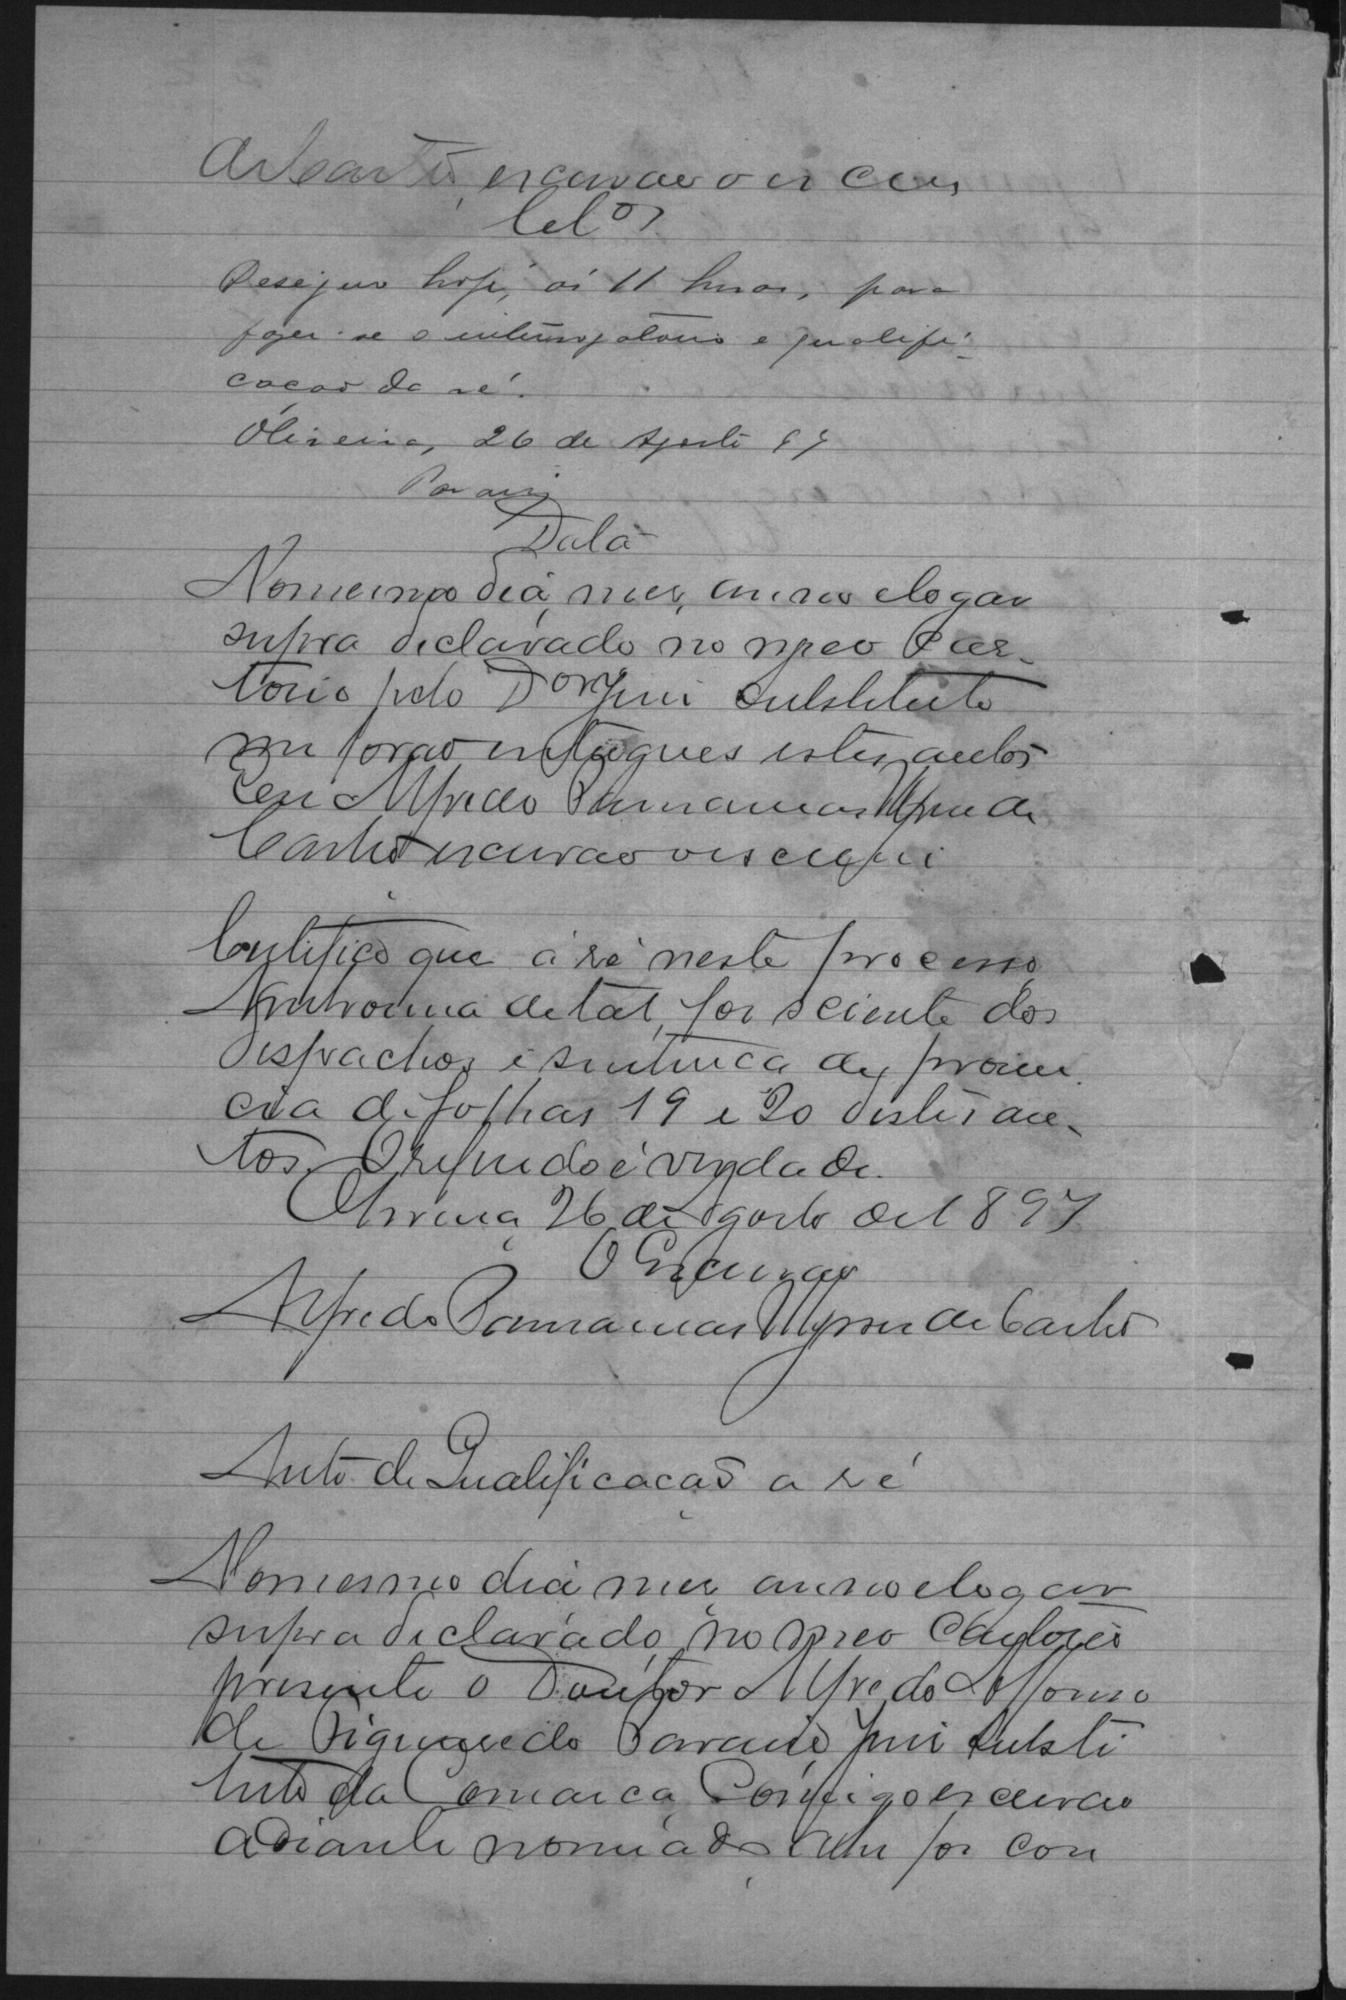 de Castro, escrivão o escrevi
Cel.os
Designo hoje, ás 11 horas, para
fazer-se o interrogatorio e qualifi-
cação da ré.
Oliveira, 26 de Agosto 97
Data
No mesmo dia, mez, anno e logar
supra declarado no meo Car-
torio pelo Dor Juiz substituto
me forão entregues estes autos
Eu Alfredo Parnamas de
Castro escrivão o escrevi
Certifico que a ré neste processo
de tal, foi sciente dos
despachos e sentença de pronun-
cia de folhas 19 e 20 destes au-
tos. O referido é verdade.
Oliveira, 26 de Agosto de 1897
O Escrivão
Alfredo de Castro
Auto de Qualificacão a ré
No mesmo dia mez, anno e logar
supra declarado, no meo Cartorio
presente o Doutor Alfredo Affonso
de Figueredo Paraiso Juiz Substi
tuto da Comarca, Comigo escrivão
adiante nomeado, ahi foi con